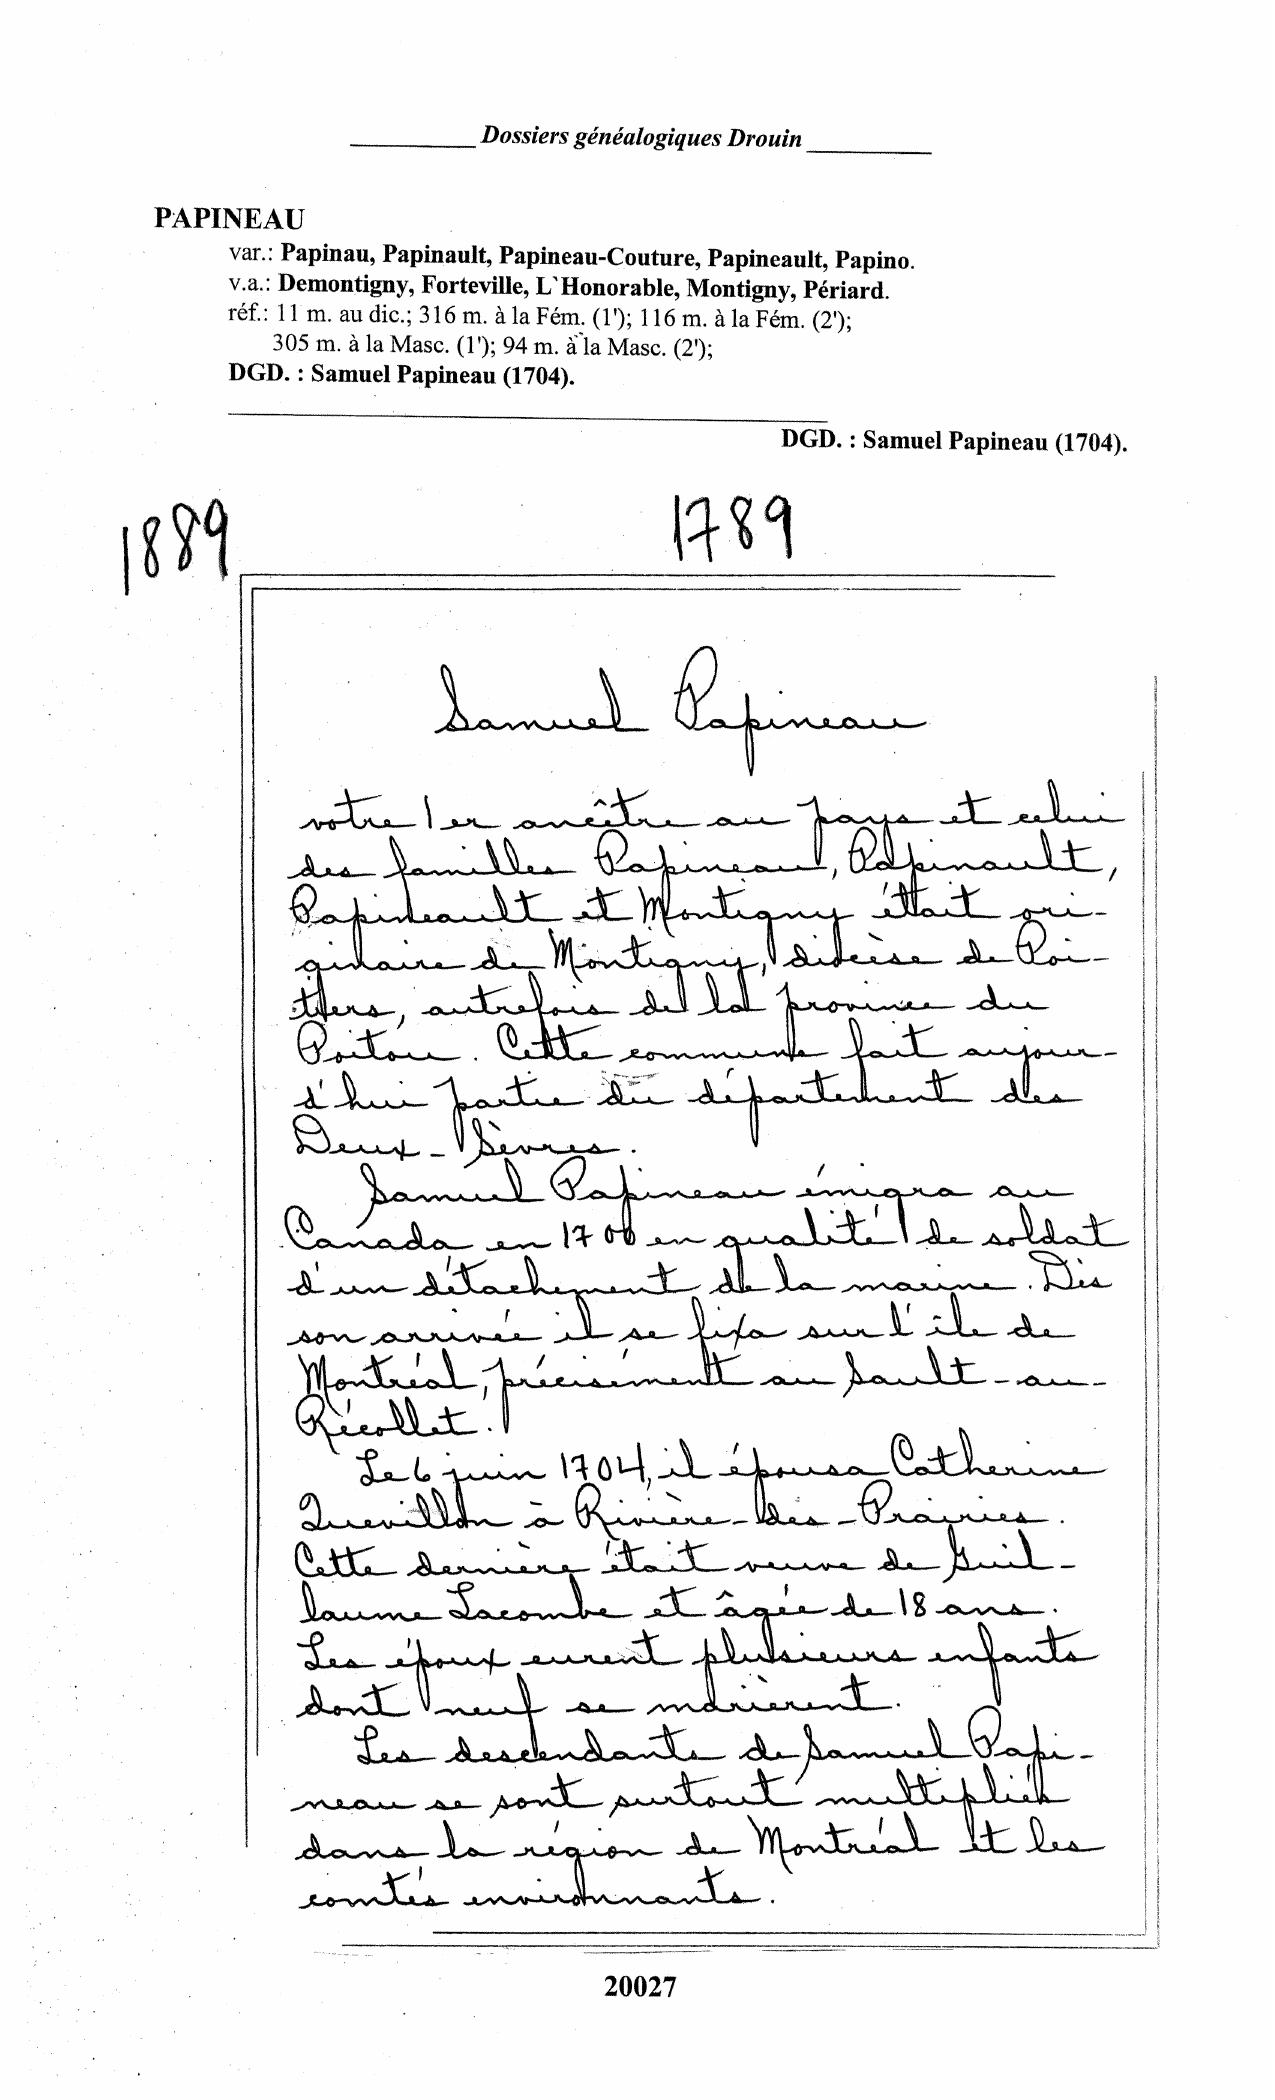 Dossiers généalogiques Drouin
PAPINEAU
var.: Papinau, Papinault, Papineau-Couture, Papineault, Papino.
v.a.: Demontigny, Forteville, L`Honorable, Montigny, Périard.
réf.: 11 m. au dic.; 316 m. à la Fém. (1'); 116 m. à la Fém. (2');
305 m. à la Masc. (1'); 94 m. à la Masc. (2');
DGD. : Samuel Papineau (1704).
DGD. : Samuel Papineau (1704).
1889
1789
Samuel Papineau
votre 1er ancêtre au pays et celui
des familles Papineau, Papinault,
Papineault et Montigny était ori-
ginaire de Montigny, diocèse de Poi-
tiers, autrefois de la province du
Poitou. Cette commune fait aujour-
d'hui partie du département des
Deux-Sèvres.
Samuel Papineau émigra au
Canada en 1700 en qualité de soldat
d'un détachement de la marine. Dès
son arrivée il se fixa sur l'île de
Montréal, précisément au Sault-au-
Récollet.
Le 6 juin 1704, il épousa Catherine
Quevillon à Rivière-des-Prairies.
Cette dernière était veuve de Guil-
laume Lacombe et âgée de 18 ans.
Les époux eurent plusieurs enfants
dont neuf se marièrent.
Les descendants de Samuel Papi-
neau se sont surtout multipliés
dans la région de Montréal et les
comtés environnants.
20027